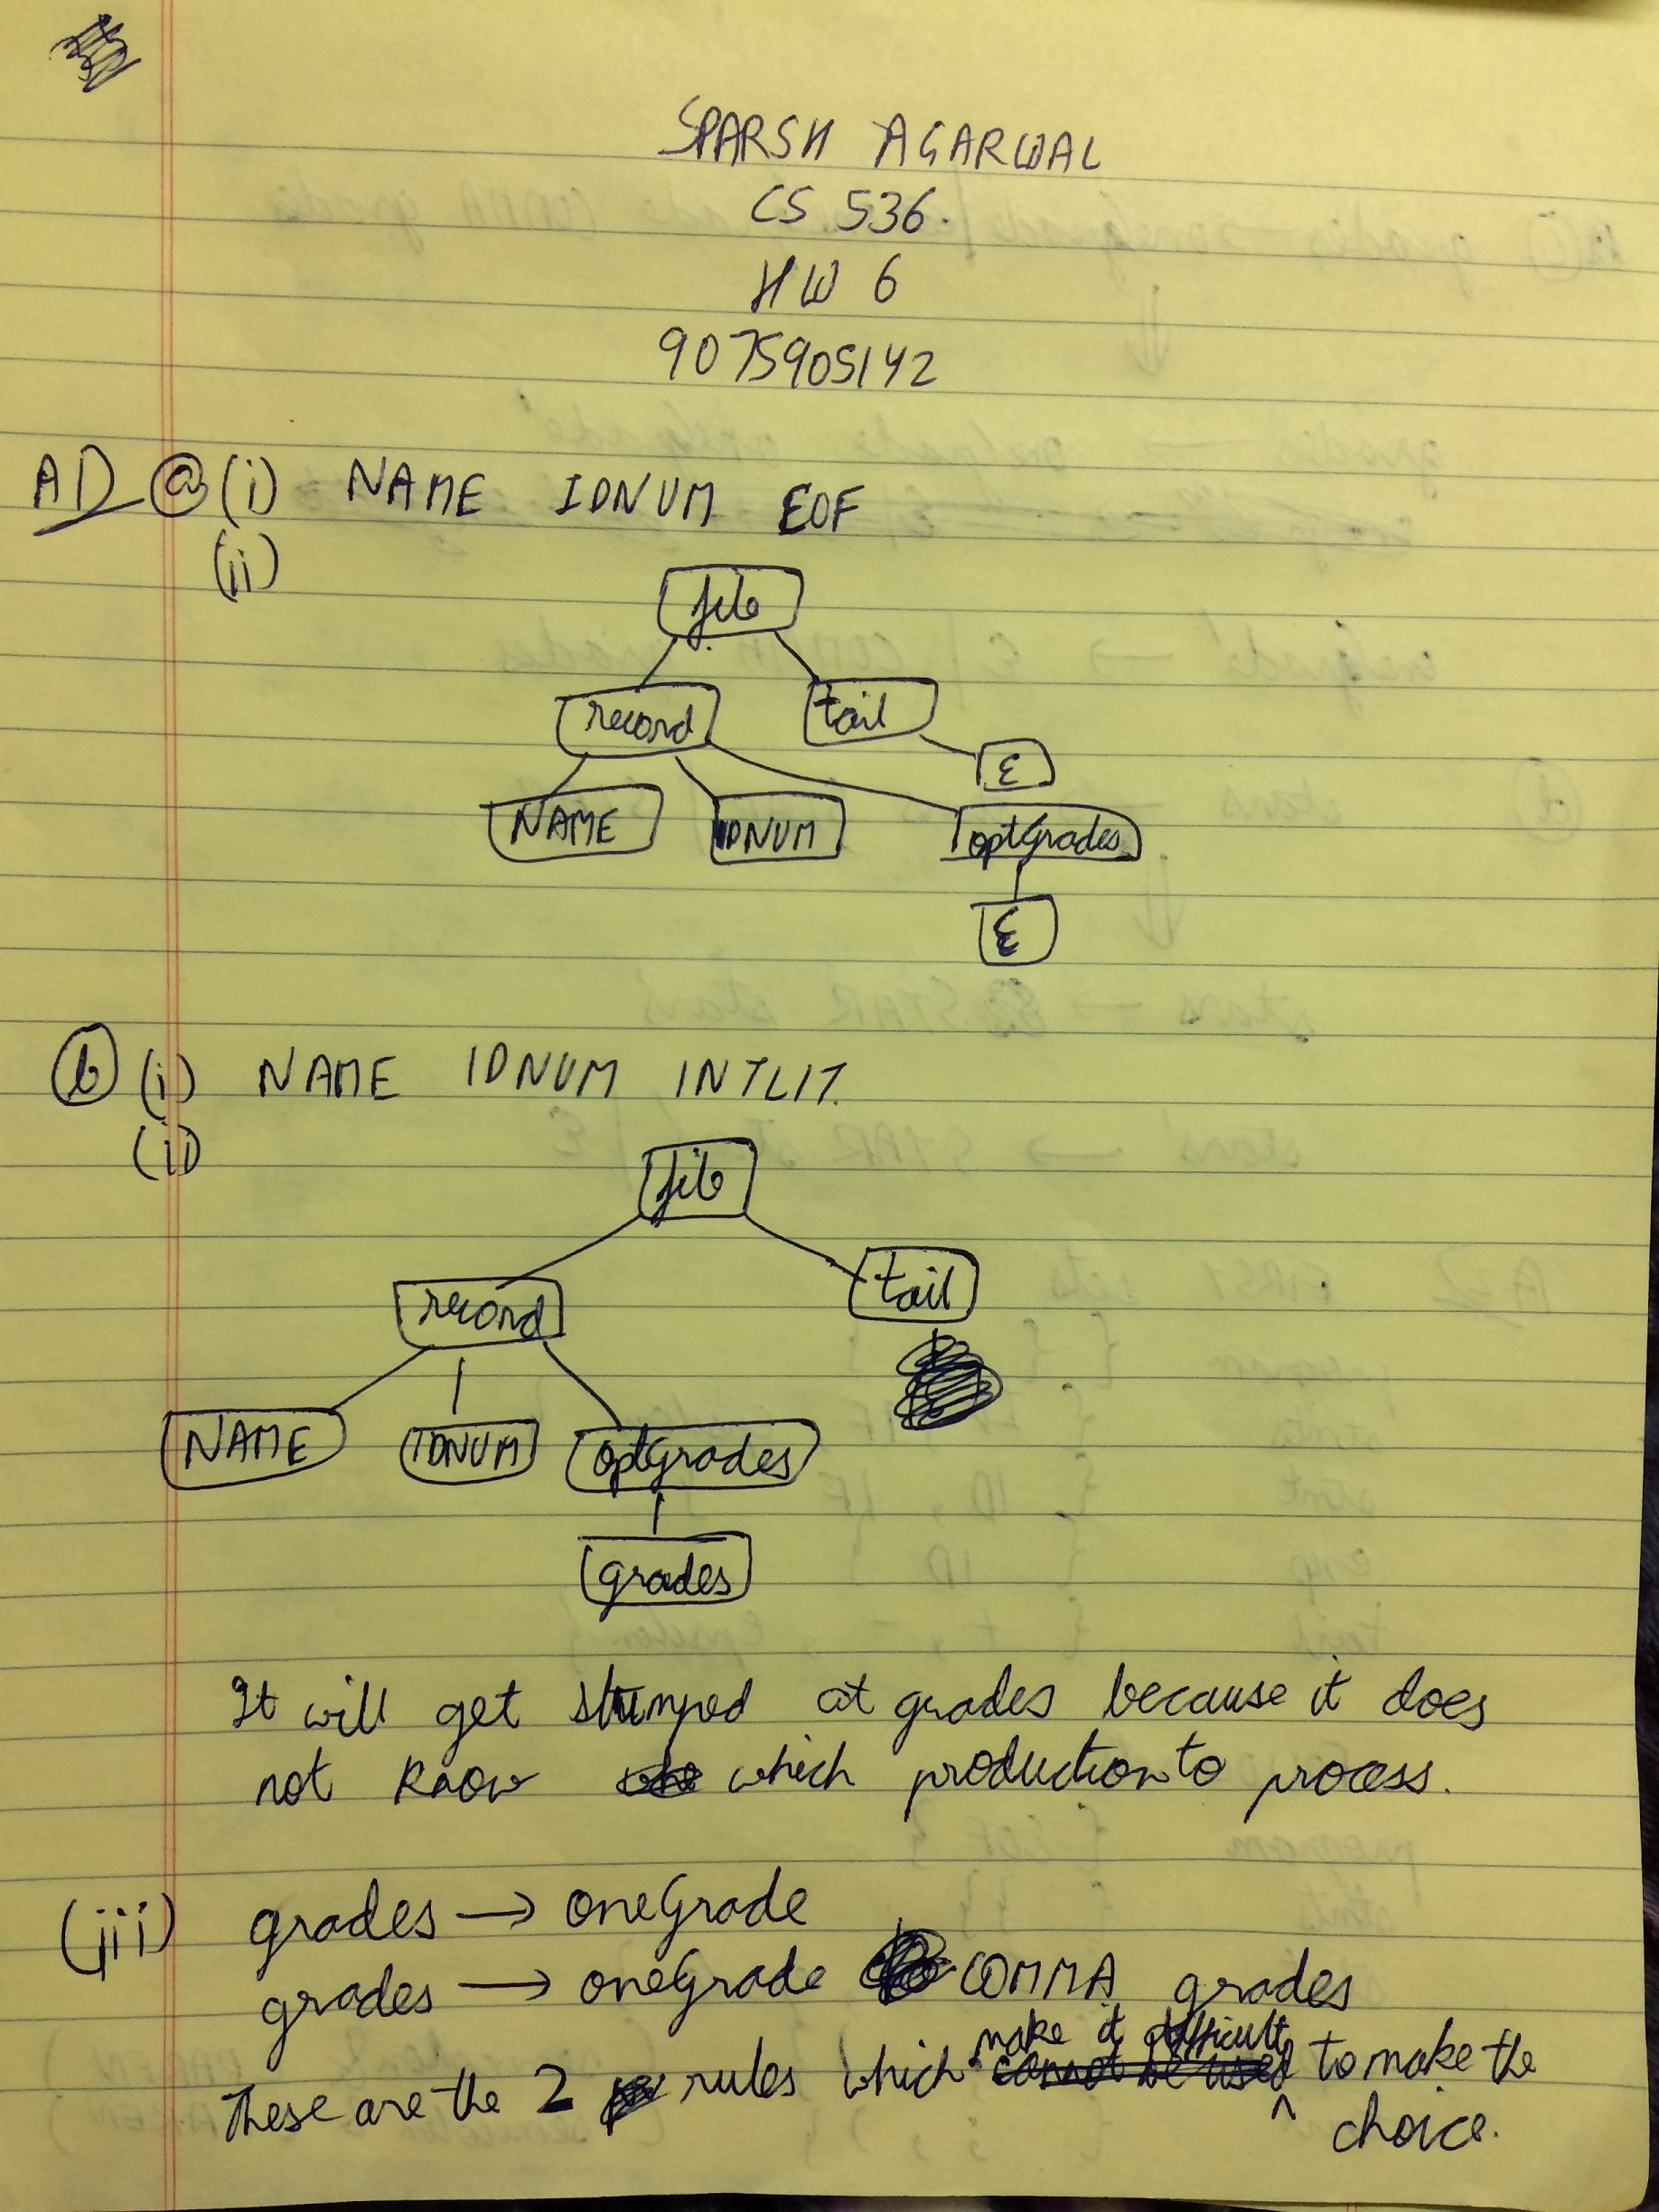 SPARSH AGARWAL
CS 536.
HW 6
9075905142
A1) (a) (i) NAME IDNUM EOF
(ii)
file
record tail
ε
NAME IDNUM optGrades
ε
(b) (i) NAME IDNUM INTLIT.
(ii)
file
record tail
NAME IDNUM optGrades
grades
It will get stumped at grades because it does
not know which production to process.
(iii) grades → oneGrade
grades → oneGrade COMMA grades
These are the 2 rules which make it difficult to make the
choice.